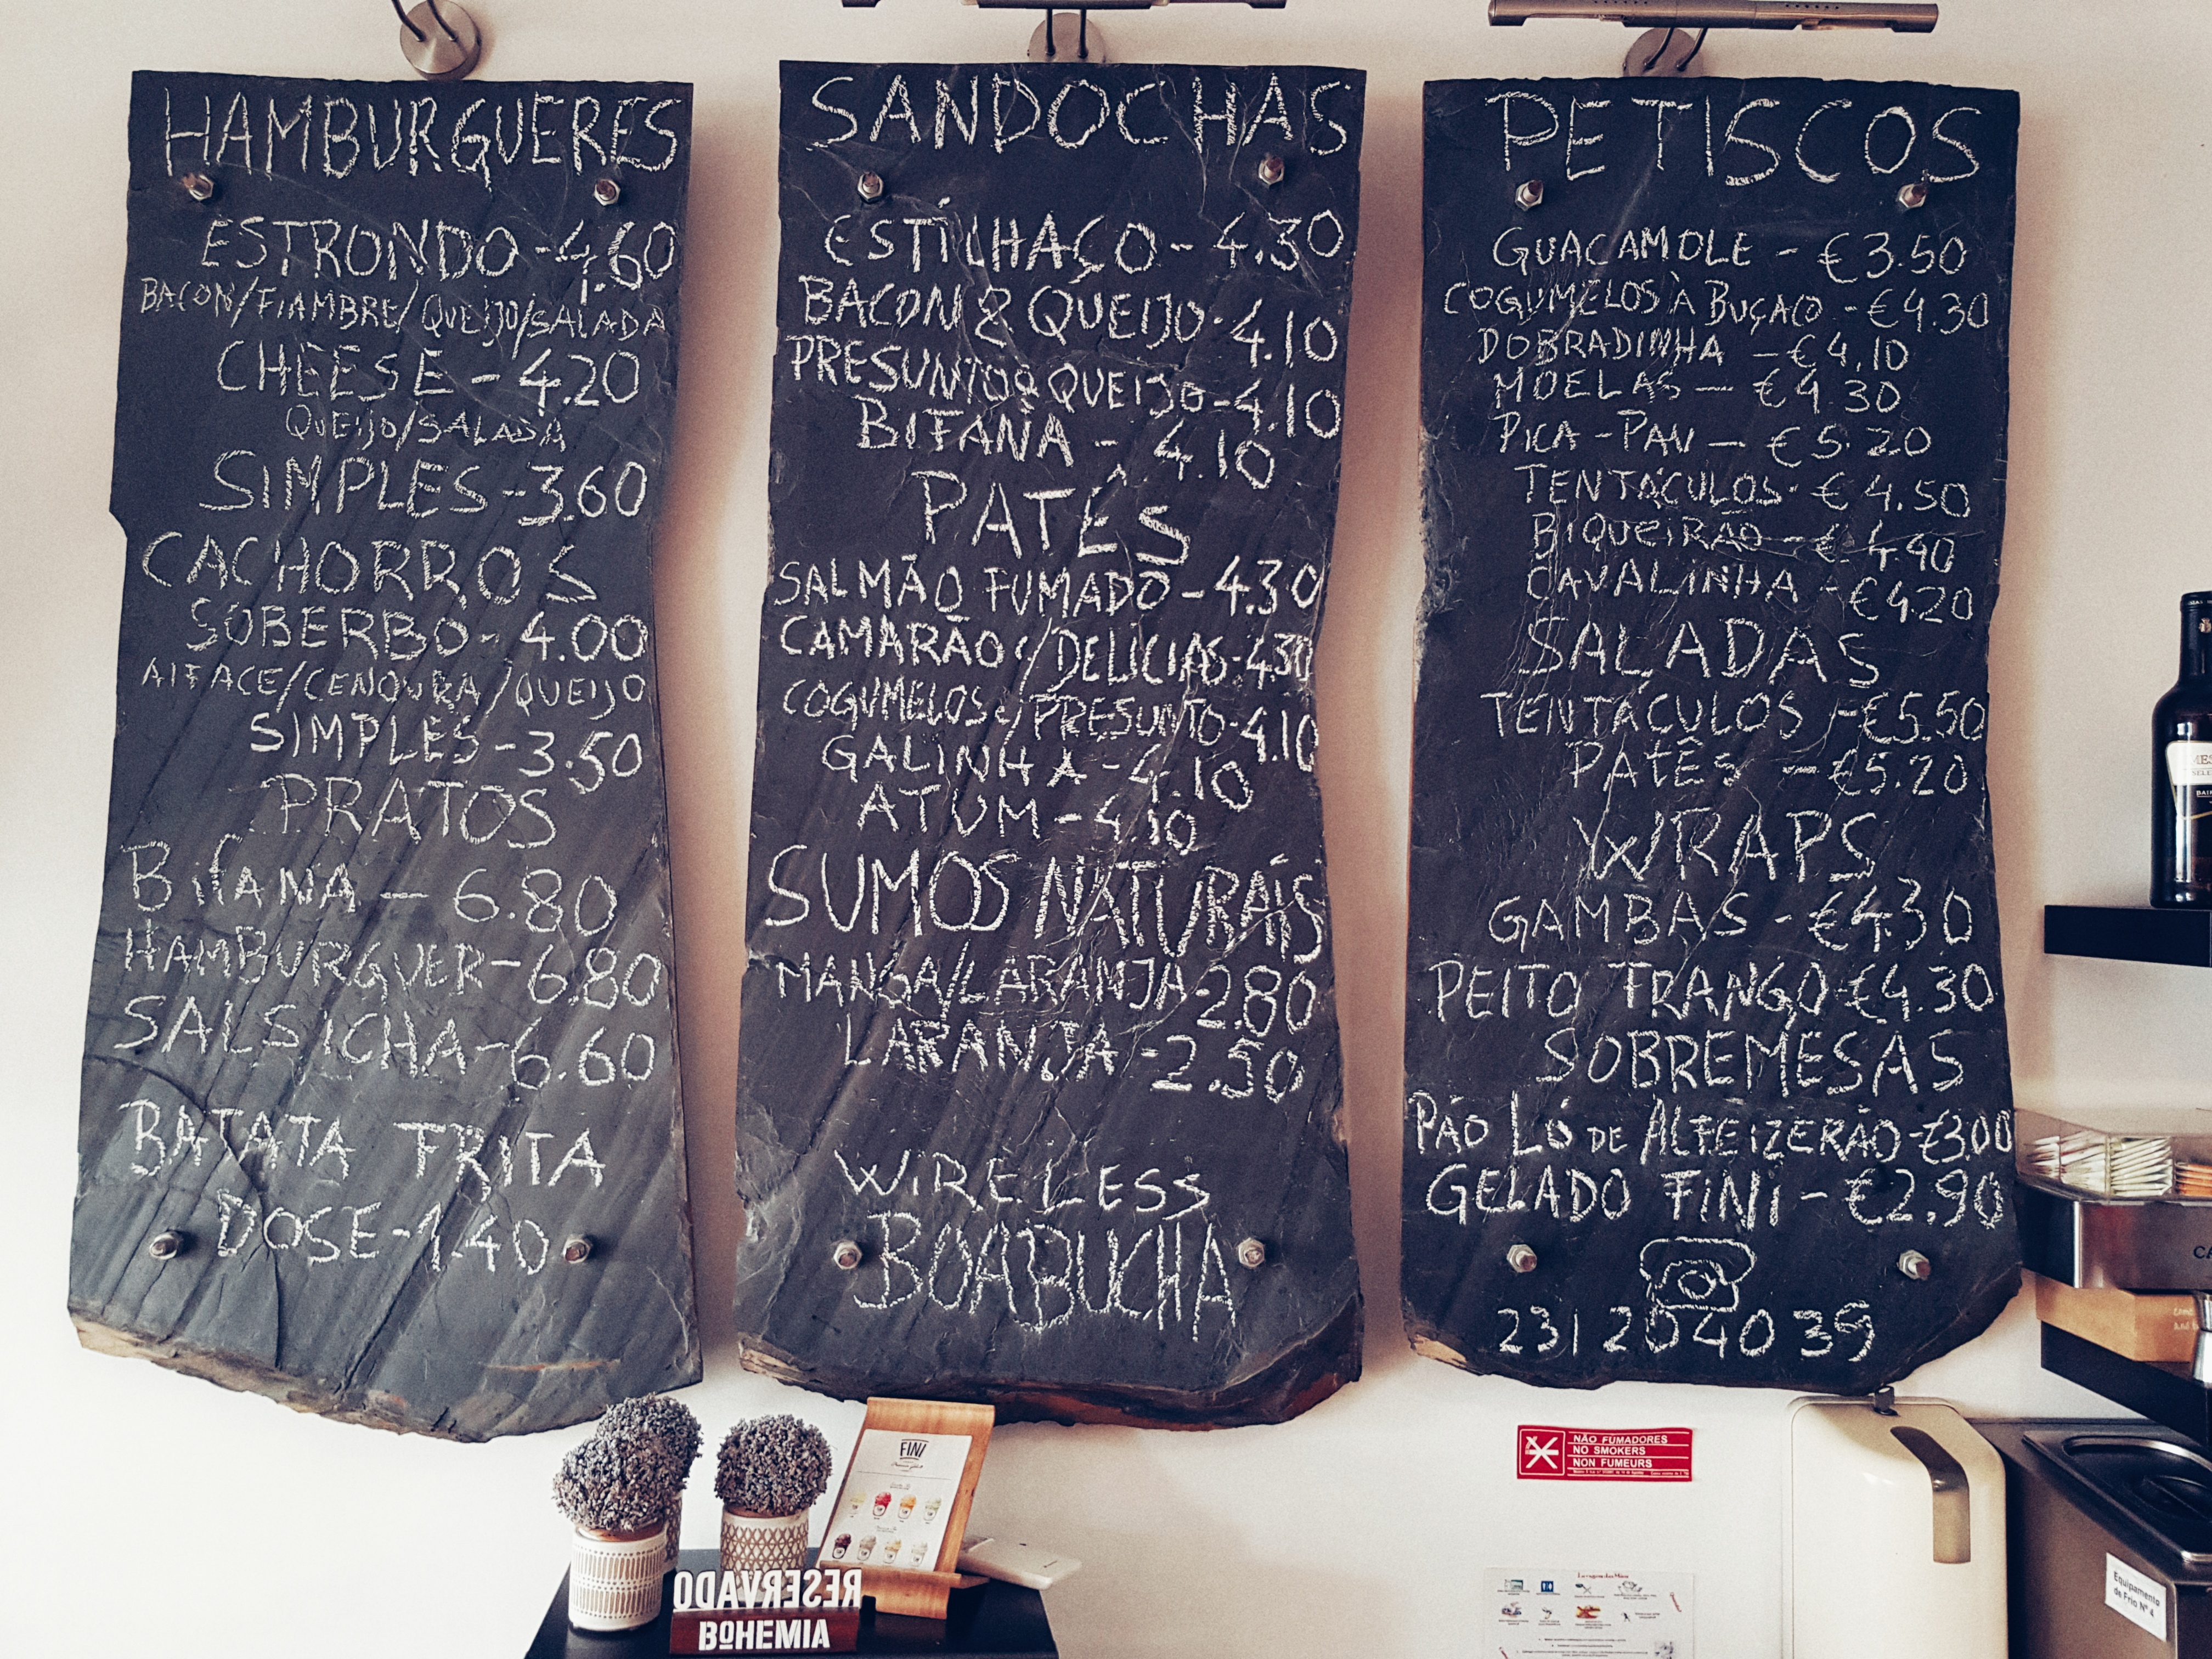 HAMBURGUERES
ESTRONDO - 4.60
BACON/FIAMBRE/QUEIJO/SALADA
CHEESE - 4.20
QUEIJO/SALADA
SIMPLES - 3.60
CACHORROS
SOBERBO - 4.00
ALFACE/CENOURA/QUEIJO
SIMPLES - 3.50
PRATOS
BifANA - 6.80
HAMBURGUER - 6.80
SALSICHA - 6.60
BATATA FRITA
DOSE - 1.40
SANDOCHAS
ESTILHAÇO - 4.30
BACON & QUEIJO - 4.10
PRESUNTO & QUEIJO - 4.10
BIFANA - 4.10
PATÊS
SALMÃO FUMADO - 4.30
CAMARÃO c/DELICIAS - 4.30
COGUMELOS c/PRESUNTO - 4.10
GALINHA - 4.10
ATUM - 4.10
SUMOS NATURAIS
MANGA/LARANJA - 2.80
LARANJA - 2.50
WiRELESS
BOABUCHA
PETISCOS
GUACAMOLE - €3.50
COGUMELOS À BUÇACO - €4.30
DOBRADINHA - €4.10
MOELAS - €4.30
PICA-PAU - €5.20
TENTÁCULOS - €4.50
BIQUEIRÃO - €4.40
CAVALINHA - €4.20
SALADAS
TENTÁCULOS - €5.50
PATÊS - €5.20
WRAPS
GAMBAS - €4.30
PEITO FRANGO €4.30
SOBREMESAS
PÃO LÓ DE ALFEIZERÃO - €3.00
GELADO FiNi - €2.90
231 204 039
NÃO FUMADORES
NO SMOKERS
NON FUMEURS
FINI
RESERVADO
BOHEMIA
Equipamento
de Frio Nº 4